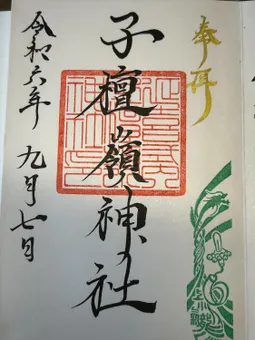 奉拝
子檀嶺神社
令和六年 九月七日